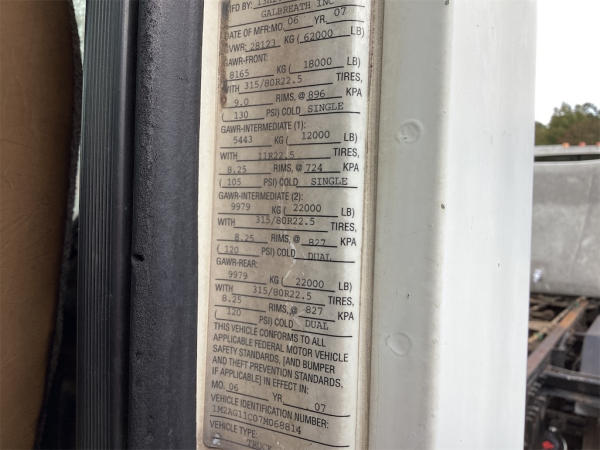 MFD BY:
GALBREATH INC
DATE OF MFR: MO. 06 YR. 07
GVWR: 28123 KG ( 62000 LB)
GAWR-FRONT:
8165 KG ( 18000 LB)
WITH 315/80R22.5 TIRES,
9.0 RIMS, @ 896 KPA
( 130 PSI) COLD SINGLE
GAWR-INTERMEDIATE (1):
5443 KG ( 12000 LB)
WITH 11R22.5 TIRES,
8.25 RIMS, @ 724 KPA
( 105 PSI) COLD SINGLE
GAWR-INTERMEDIATE (2):
9979 KG ( 22000 LB)
WITH 315/80R22.5 TIRES,
8.25 RIMS, @ 827 KPA
( 120 PSI) COLD DUAL
GAWR-REAR:
9979 KG ( 22000 LB)
WITH 315/80R22.5 TIRES,
8.25 RIMS, @ 827 KPA
( 120 PSI) COLD DUAL
THIS VEHICLE CONFORMS TO ALL
APPLICABLE FEDERAL MOTOR VEHICLE
SAFETY STANDARDS, [AND BUMPER
AND THEFT PREVENTION STANDARDS,
IF APPLICABLE] IN EFFECT IN:
MO. 06 YR. 07
VEHICLE IDENTIFICATION NUMBER:
1M2AG11C07M068814
VEHICLE TYPE:
TRUCK